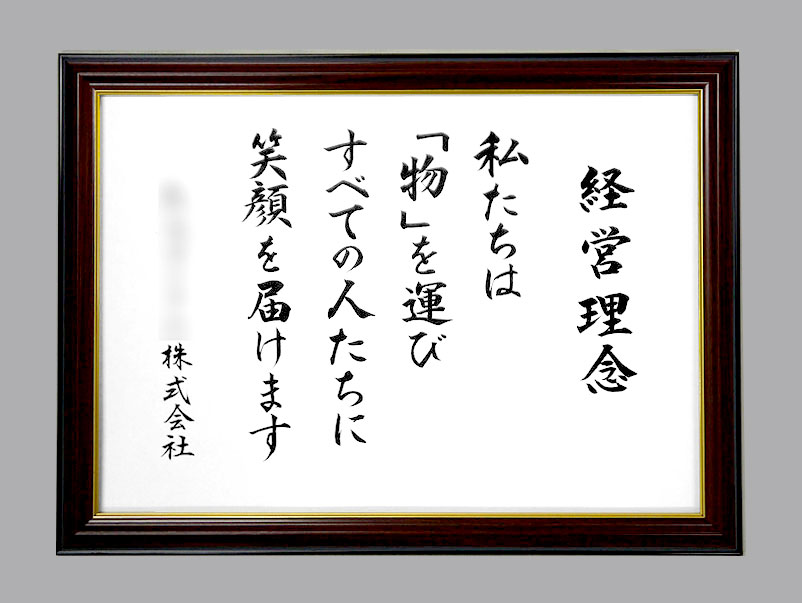 経営理念
私たちは
「物」を運び
すべての人たちに
笑顔を届けます
株式会社